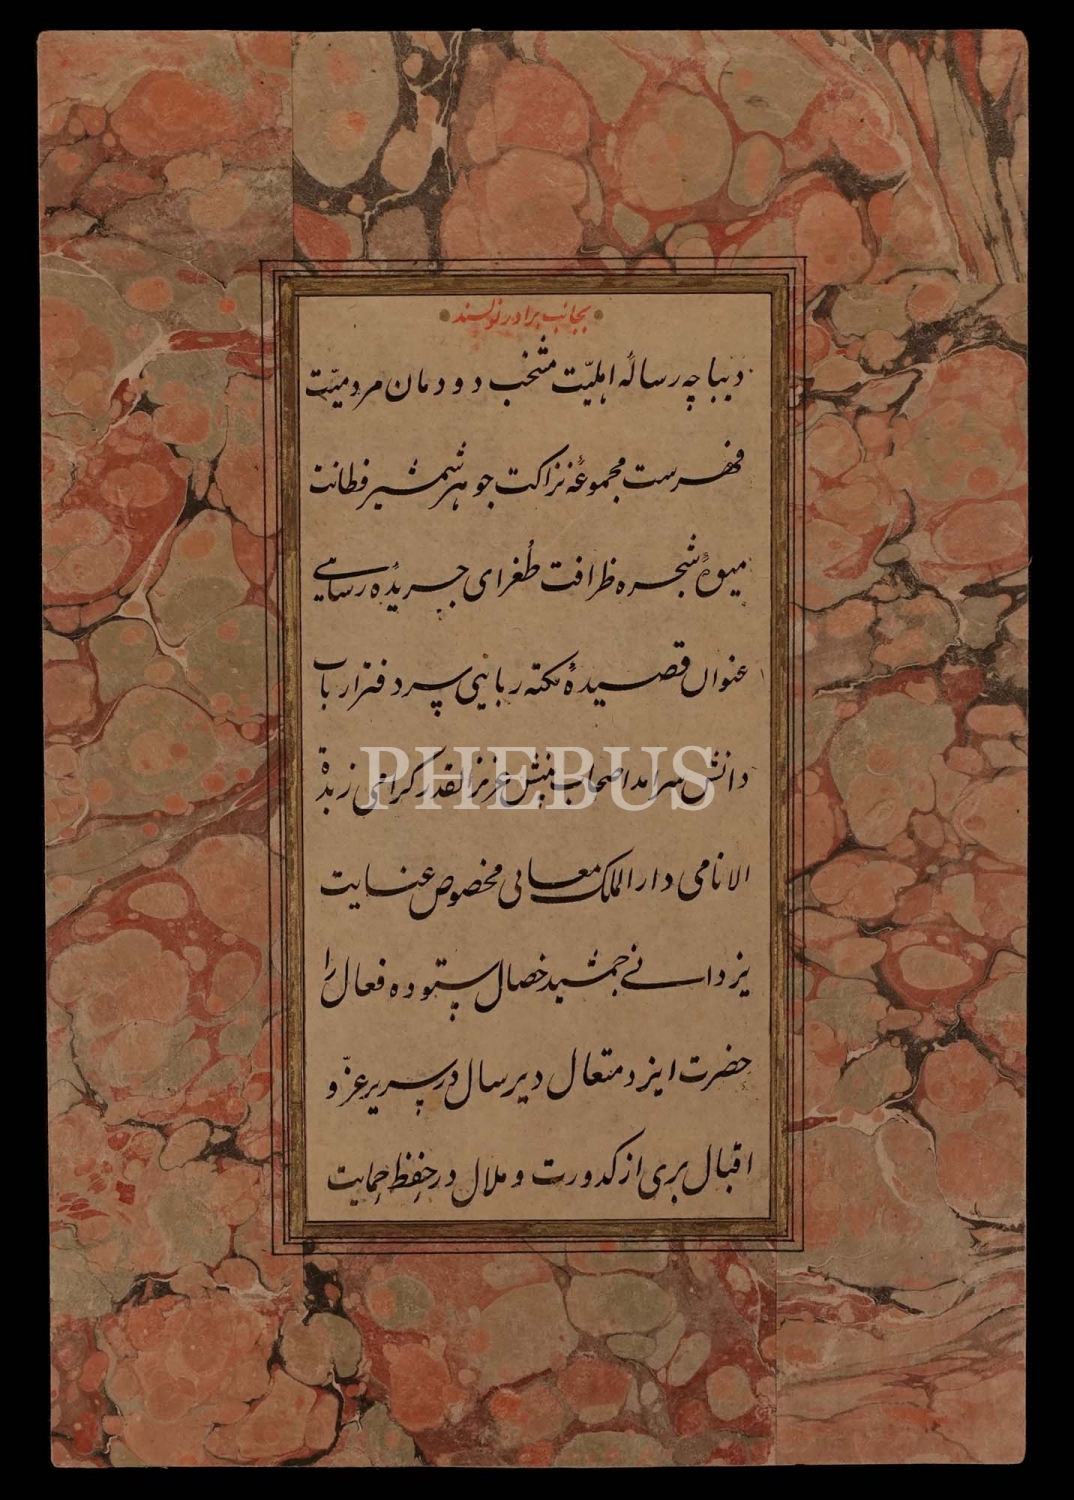 بجانب برادر نویسند
دیباچه رسالهٔ اهلیّت منتخب دودمان مردمیّت
فهرست مجموعهٔ نزاکت جوهر شمشیر فطانت
میوهٔ شجره ظرافت طُغرای جریدهٔ رسایی
عنوان قصیدهٔ نکته ربایی سردفتر ارباب
دانش سرامد اصحاب بینش عزیزالقدر کرامی زبدة
الانامی دارالملک معانی مخصوص عنایت
یزدانی جمشید خصال ستوده فعال را
حضرت ایزد متعال دیر سال در سریر عزّ و
اقبال بری از کدورت و ملال در حفظ حمایت
PHEBUS